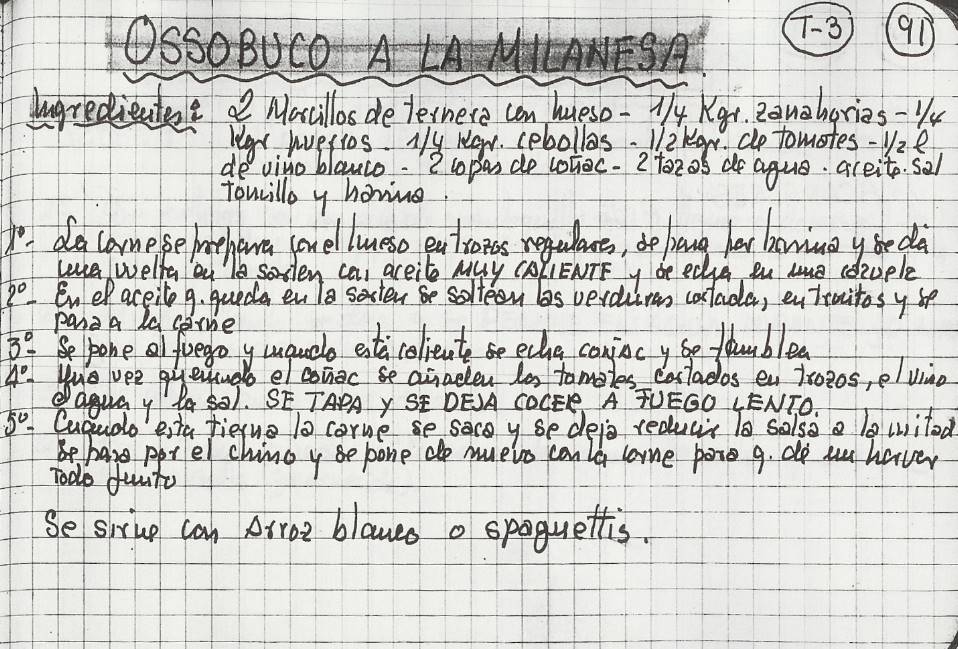 OSSOBUCO A LA MILANESA. T-3 91
Ingredientes: 2 Morcillos de ternera con hueso - 1/4 Kgr. zanahorias - 1/4
Kgr puerros - 1/4 Kgr. cebollas - 1/2 Kgr. de tomates - 1/2 l
de vino blanco - 2 copas de coñac - 2 tazas de agua - aceite. sal
tomillo y harina.
1º- La carne se prepara con el hueso en trozos regulares, se pasa por harina y se da
una vuelta en la sarten con aceite MUY CALIENTE y se echa en una cazuela
2º- En el aceite q. queda en la sarten se saltean las verduras cortadas, en trocitos y se
pasa a la carne
3º- Se pone al fuego y cuando está caliente se echa coñac y se flamblea
4º- Una vez quemado el coñac se añaden los tomates cortados en trozos, el vino
el agua y la sal. SE TAPA Y SE DEJA COCER A FUEGO LENTO.
5º- Cuando esta tierna la carne se saca y se deja reducir la salsa a la mitad
Se pasa por el chino y se pone de nuevo con la carne para q. dé un herver
todo junto
Se sirve con Arroz blanco o spaguettis.